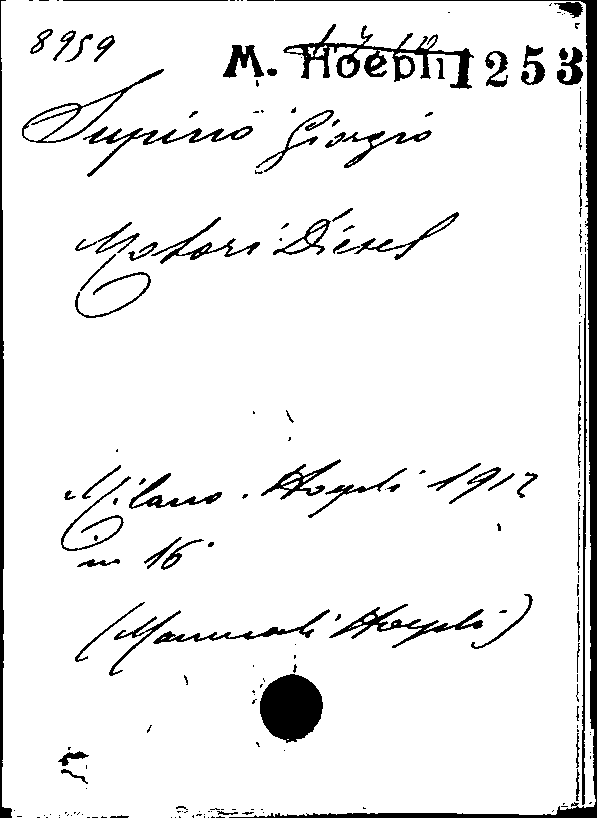 8959
M. Hoepli 1253
Supino Giorgio
Motori Diesel
Milano. Hoepli 1912
in 16°
(Manuali Hoepli)